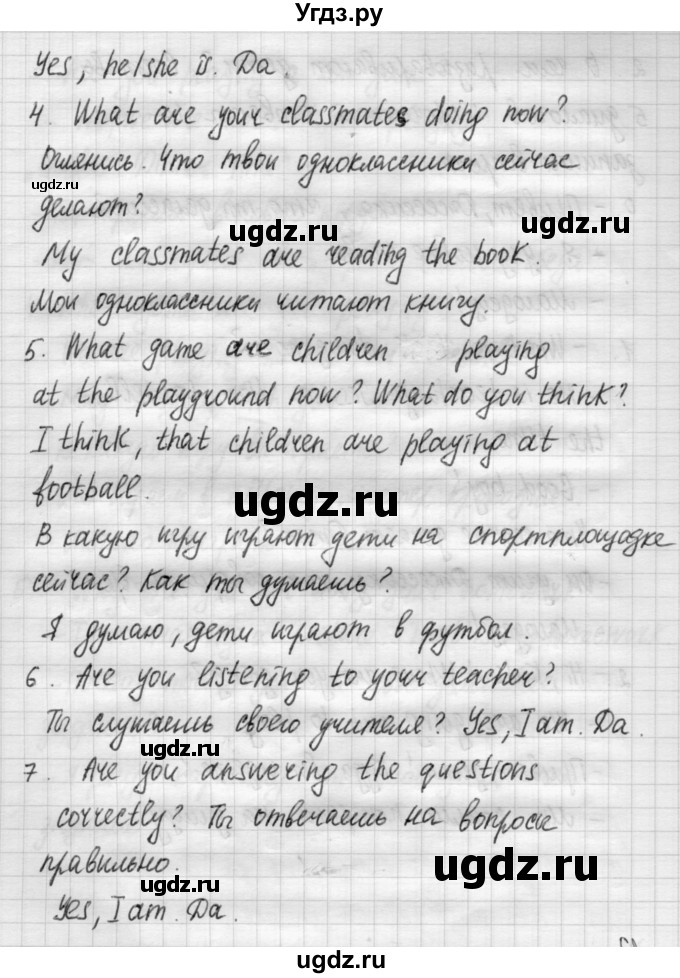 Угдз.ру
Yes, he/she is. Да.
4. What are your classmates doing now?
Оглянись. Что твои одноклассники сейчас
делают?
My classmates are reading the book.
Мои одноклассники читают книгу.
5. What game are children playing
at the playground now? What do you think?
I think, that children are playing at
football.
В какую игру играют дети на спортплощадке
сейчас? Как ты думаешь?
Я думаю, дети играют в футбол.
6. Are you listening to your teacher?
Ты слушаешь своего учителя? Yes, I am. Да.
7. Are you answering the questions
correctly? Ты отвечаешь на вопросы
правильно.
Yes, I am. Да.
ugdz.ru
ugdz.ru
ugdz.ru
ugdz.ru
ugdz.ru
ugdz.ru
ugdz.ru
ugdz.ru
ugdz.ru